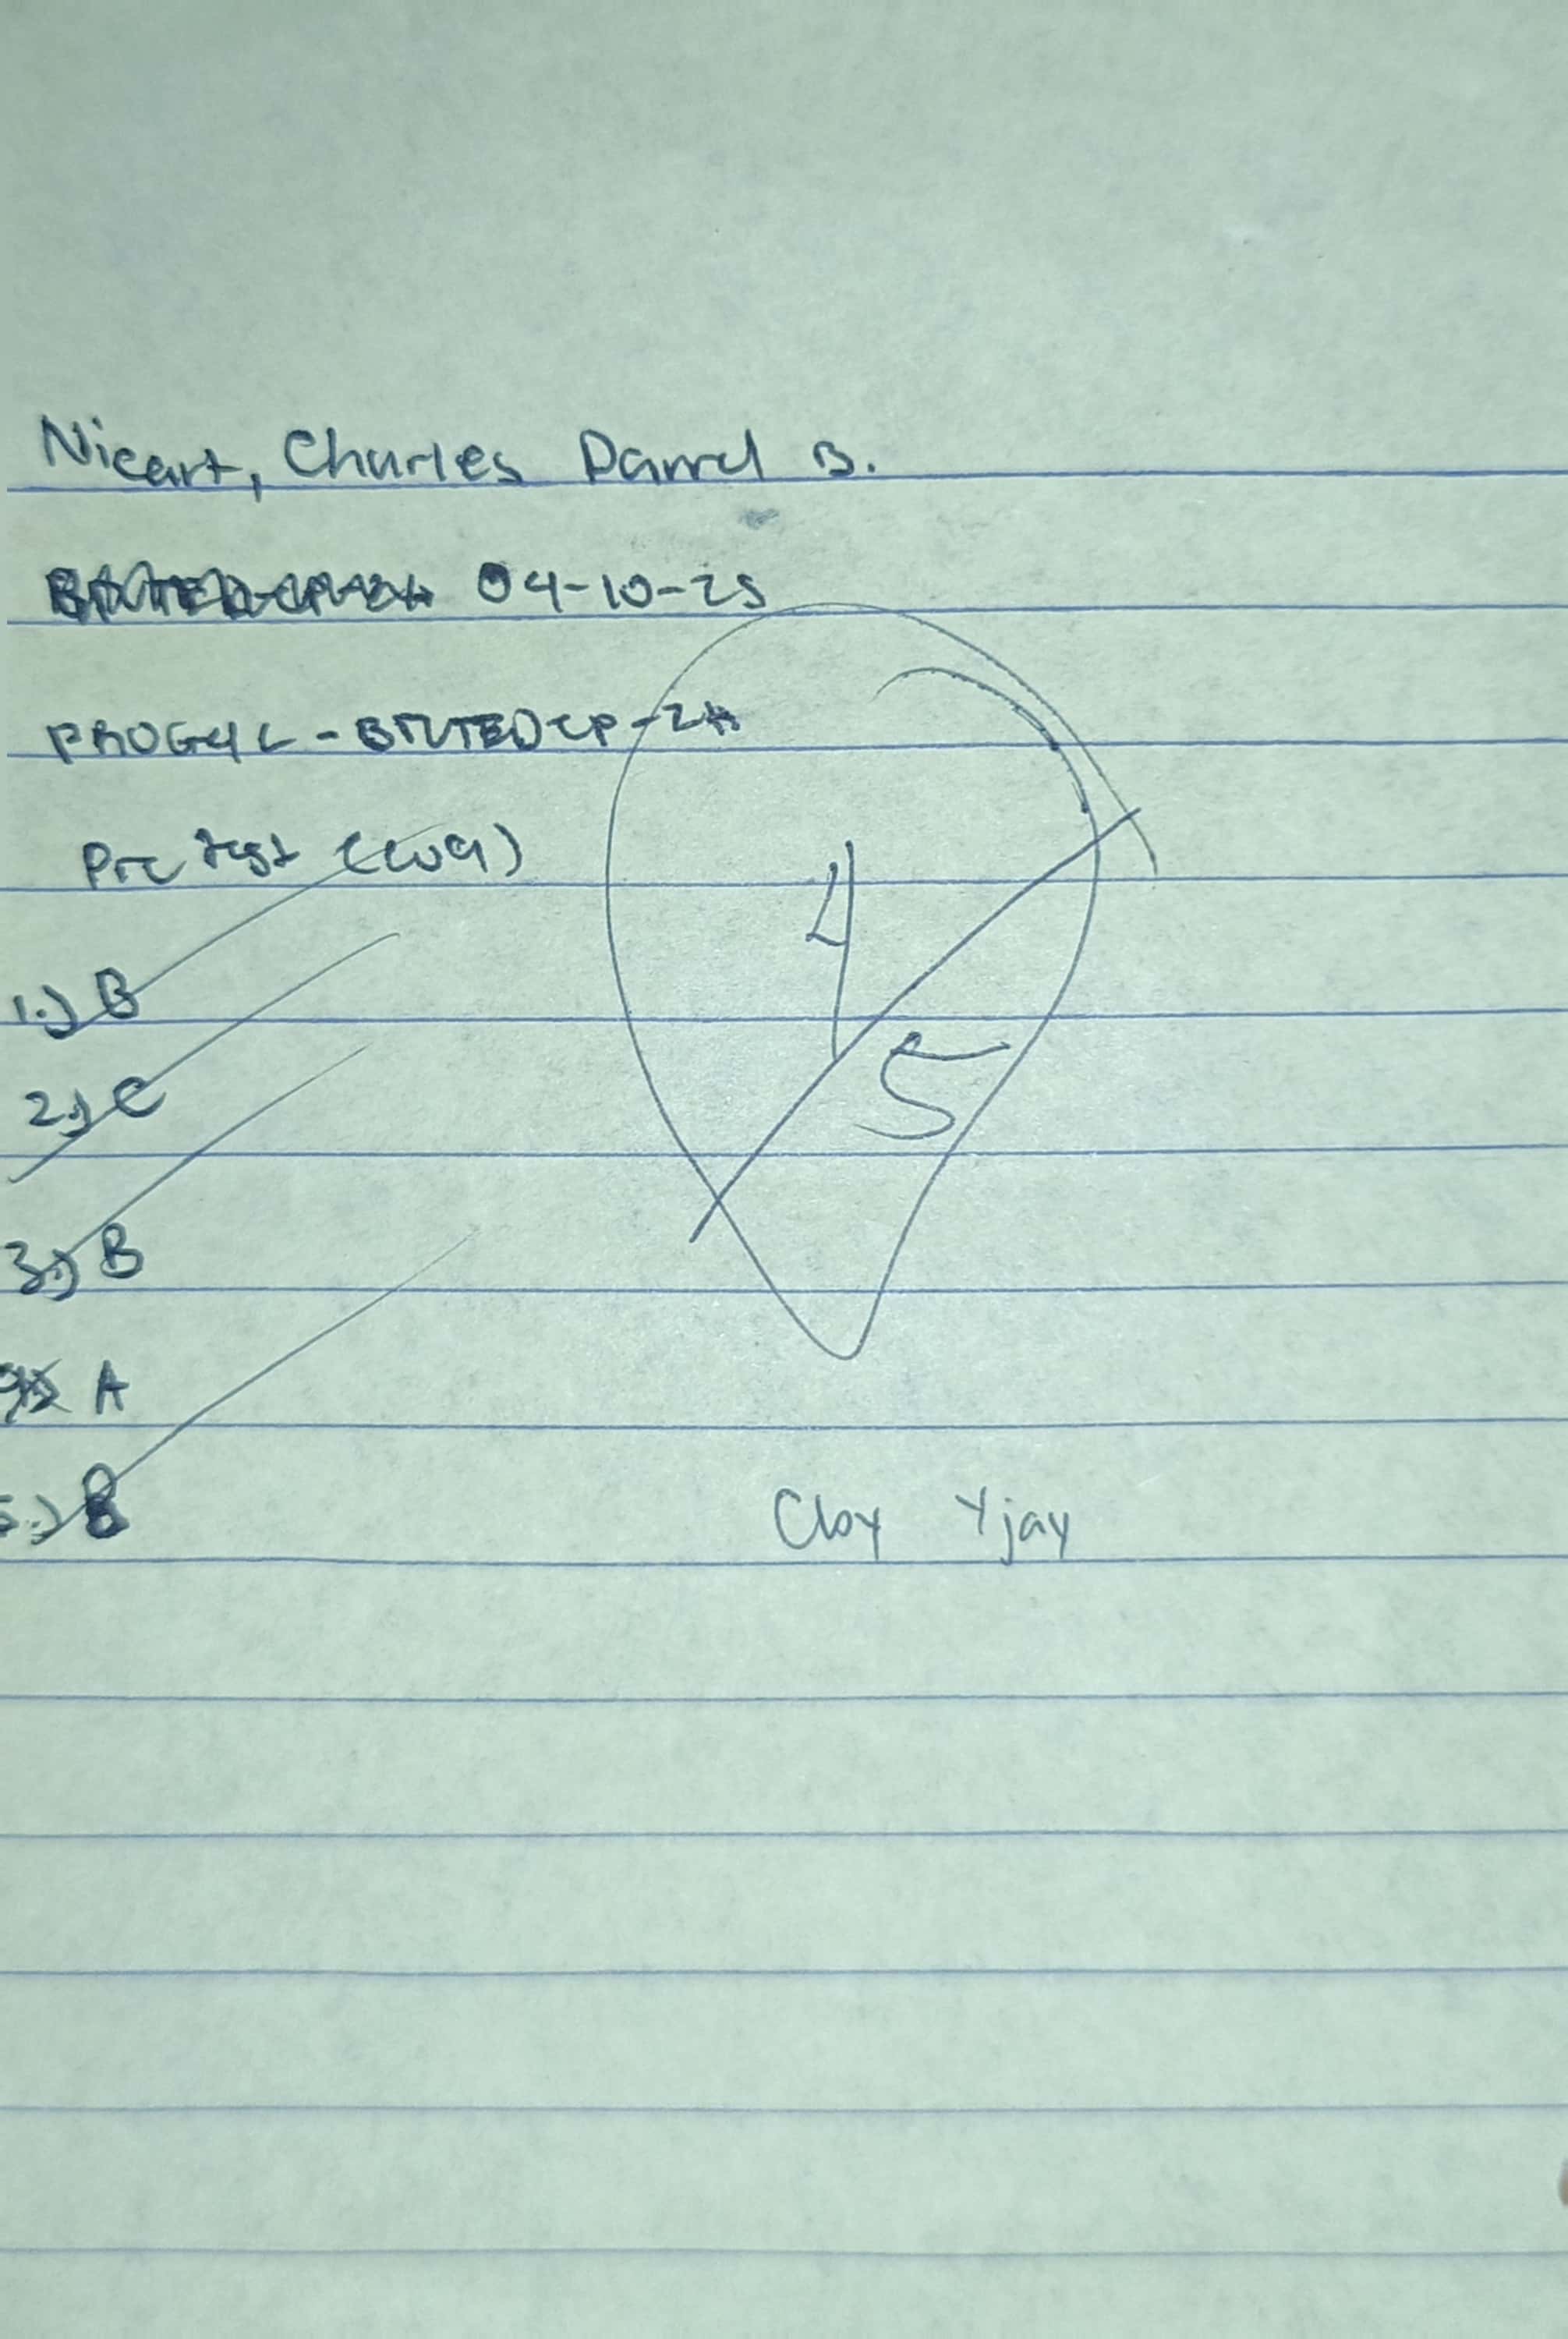 Nicart, Charles Darrel B.
04-10-25
PROG4L-BTVTEDCP-2A
Pre test
1.) B
2.) C
3.) B
A
5.) B
4
5
Cloy Yjay